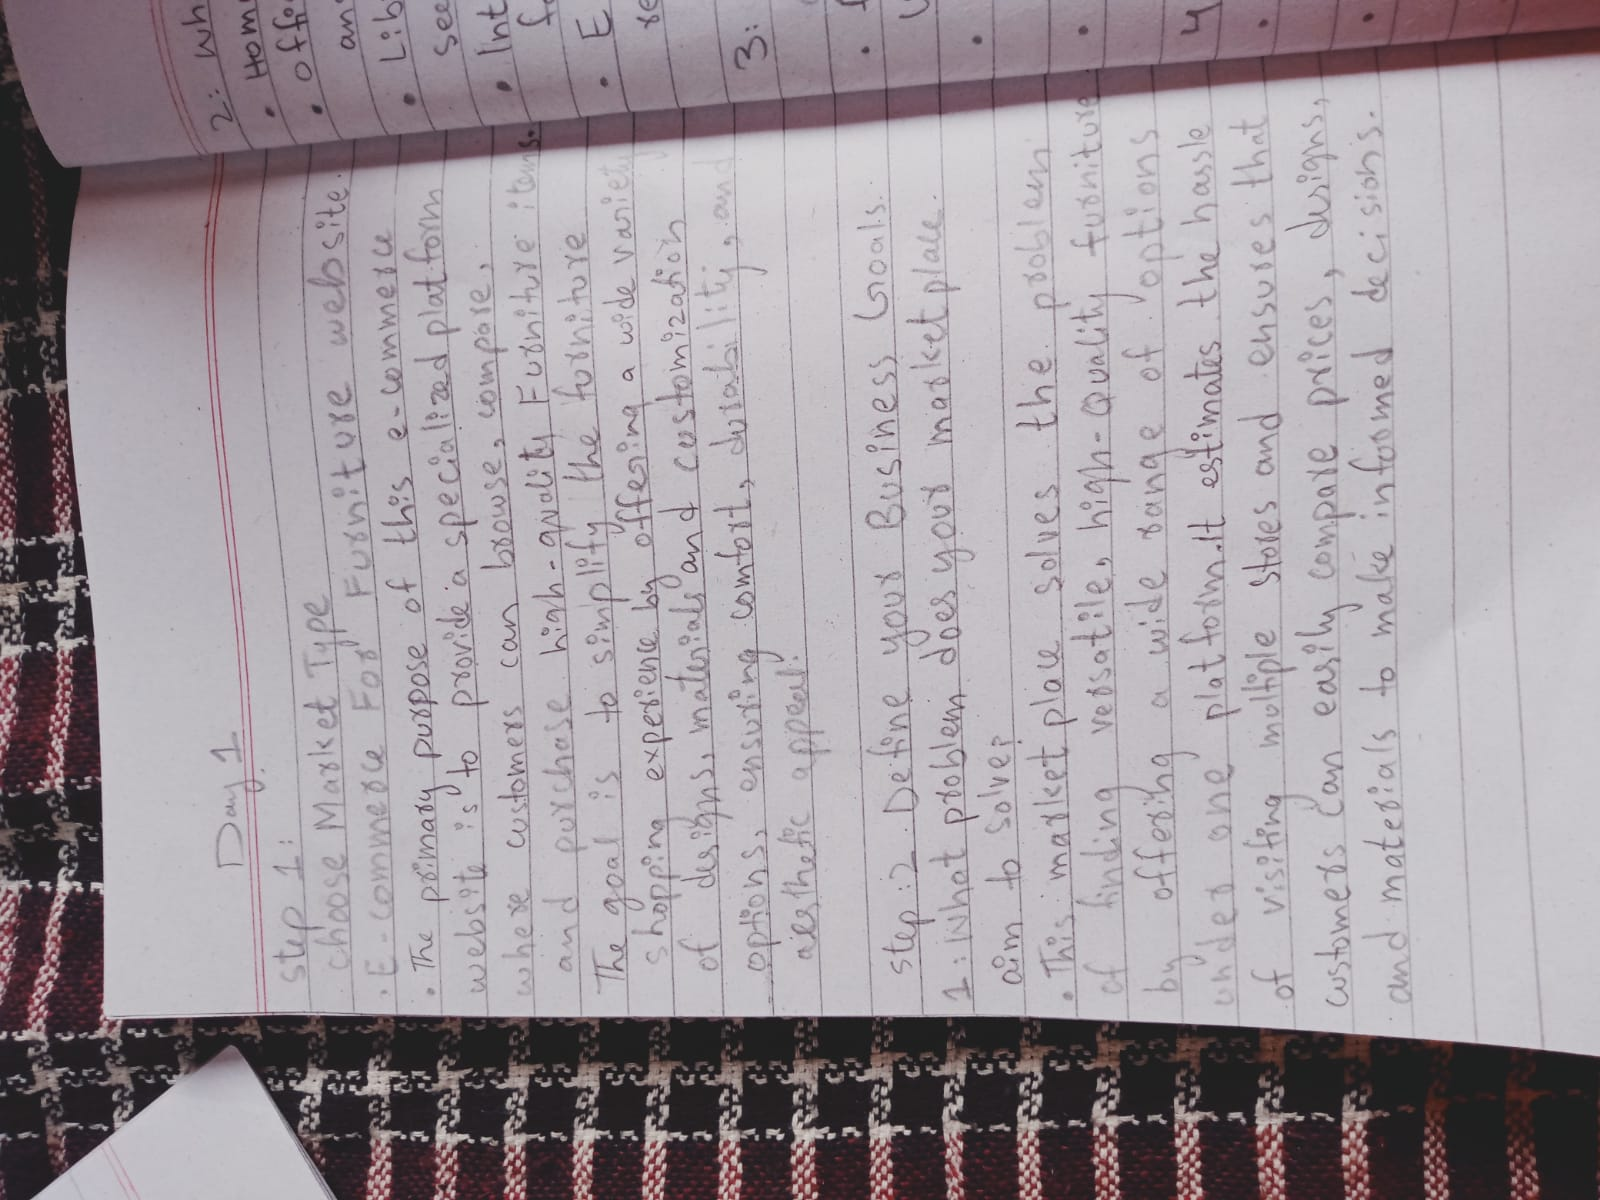 Day 1
step 1:
choose Market Type
. E-commerce For Furniture website.
. The primary purpose of this e-commerce
website is to provide a specialized platform
where customers can browse, compare,
and purchase high-quality Furniture items.
The goal is to simplify the furniture
shopping experience by offering a wide variety
of designs, materials and customization
options, ensuring comfort, durability, and
aesthetic appeal.
step:2 Define your Business Goals.
1: What problem does your marketplace
aim to solve?
. This market place solves the problem
of finding versatile, high-Quality furniture
by offering a wide range of options
under one platform. It estimates the hassle
of visiting multiple stores and ensures that
customers can easily compare prices, designs,
and materials to make informed decisions.
2: Wh
• Hom
• offe
an
• Lib
see
• Int
f
• E
re
3:
4